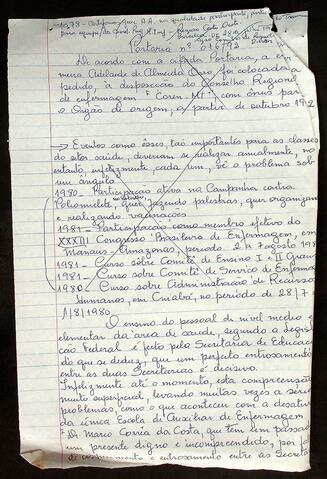 1978 - Certificou que A.A. na qualidade participante, participou
para equipe/do Coord. Prof. H. Inf
Portaria nº 016/92
De acordo com a citada Portaria, a en
meira Adelaide de Almeida Orro foi colocada a
pedido, à disposição do Conselho Regional
de enfermagem "Coren-MT" com ônus para
o orgão de origem, a partir de outubro 192
→ Eventos como êsses, tão importantes para as classes
do setor saúde, deveriam se realizar anualmente, no
entanto, infelizmente cada um, vê o problema sob
um ângulo.
1980 - Participação ativa na Campanha contra
Poliomielite, quer fazendo palestras, quer organizan
e realizando vacinações
1981 - Participação como membro efetivo do
XXXIII Congresso Brasileiro de Enfermagem, em
Manaus Amazonas, período 2 a 7 agosto 198
1981 - Curso sobre Comitê de Ensino I e II Grau
1981 - Curso sobre Comitê de Serviço de Enferma
1980 - Curso sobre Administração de Recursos
Humanos, em Cuiabá, no período de 28/7 a
1/8/1980
O ensino do pessoal de nível médio e
elementar da área de saúde, segundo a legisl
ção Federal é feito pela Secretaria de Educaçã
do que se deduz, que um perfeito entrosamento
entre as duas Secretarias é decisivo.
Infelizmente até o momento, esta compreensão
muito superficial, levando muitas vezes a sérios
problemas, como o que aconteceu com a desativa
da única Escola de Auxiliar de Enfermagem
"Dr. Mario Correa da Costa, que tem um passado
um presente digno e incompreendido, por fa
de conhecimento e entrosamento entre as Secreta